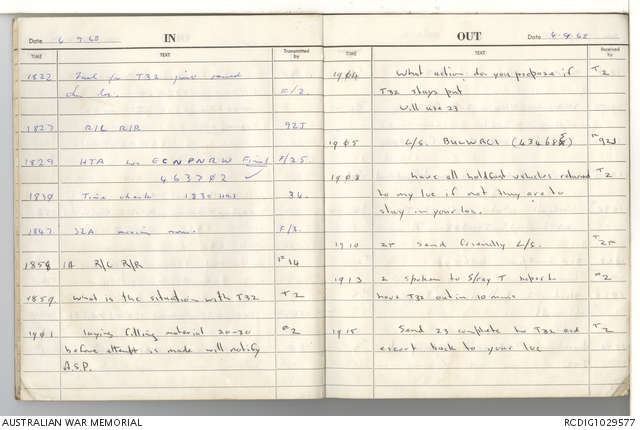 IN
Date 6-9-68
TIME TEXT Transmitted by
1822 for T32
F/2.
1827 R/L R/R 92J
1829 HTA ECNPNRW F/25
463702 ✓
1830 Time check 1830 Hrs 34
1847 32A moving now. F/3
1858 1A R/L R/R 14
1859 What is the situation with T32 T2
1901 laying filling material 20-30 2
before attempt is made will notify
A.S.P.
OUT
Date 6-9-68
TIME TEXT Received by
1904 What action do you propose if T2
T32 stays put
Will use 23
1905 L/S. BULWRCI 92J
1908 have all holdfast vehicles returned T2
to my loc if not they are to
stay in your loc.
1910 25 Send friendly L/S.
1913 2 spoken to S/ray T 2
have T32 out in 10 mins
1915 Send 23 complete to T32 and T2
escort back to your loc
AUSTRALIAN WAR MEMORIAL
RCDIG1029577